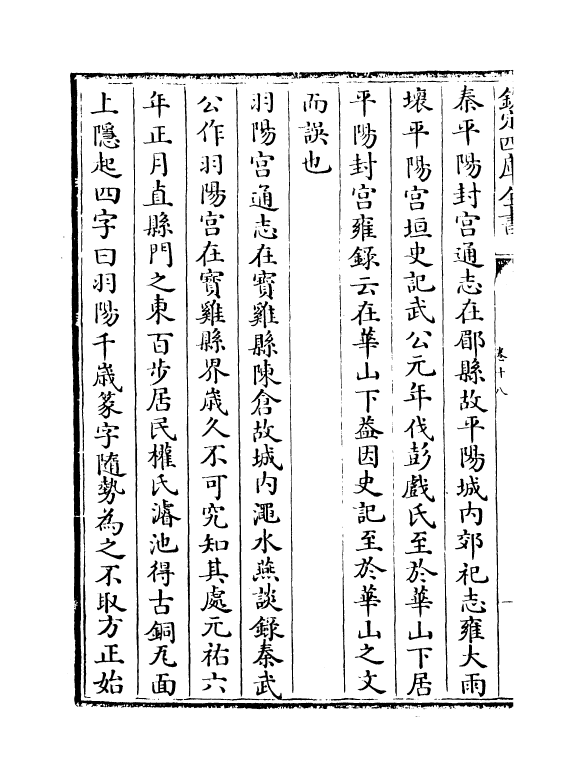 欽定四庫全書
卷十八
秦平陽封宫通志在郿縣故平陽城内郊祀志雍大雨
壊平陽宫垣史記武公元年伐彭戲氏至於華山下居
平陽封宫雍録云在華山下葢因史記至於華山之文
而誤也
羽陽宫通志在寳雞縣陳倉故城内澠水燕談録秦武
公作羽陽宫在寳雞縣界歳久不可究知其處元祐六
年正月直縣門之東百步居民權氏濬池得古銅瓦面
上隱起四字曰羽陽千歳篆字隨勢為之不取方正始